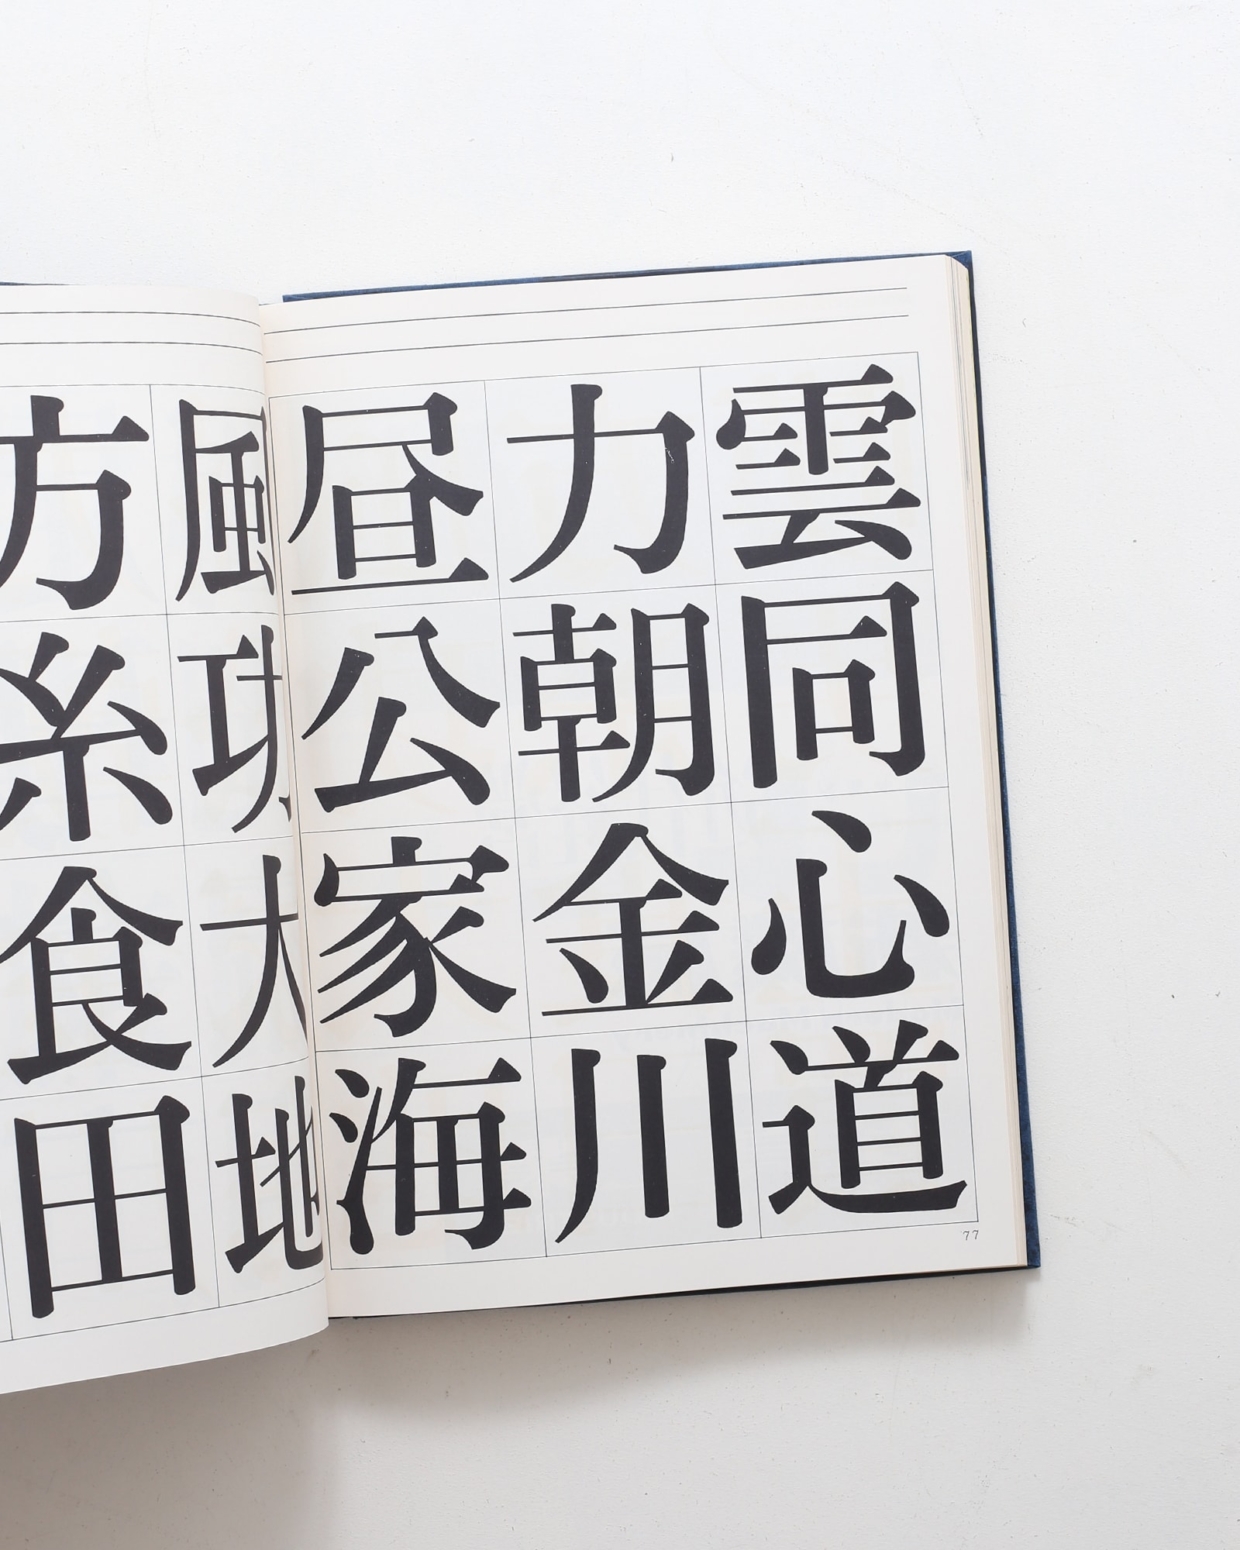 方風昼力雲
糸功公朝同
食大家金心
田地海川道
77